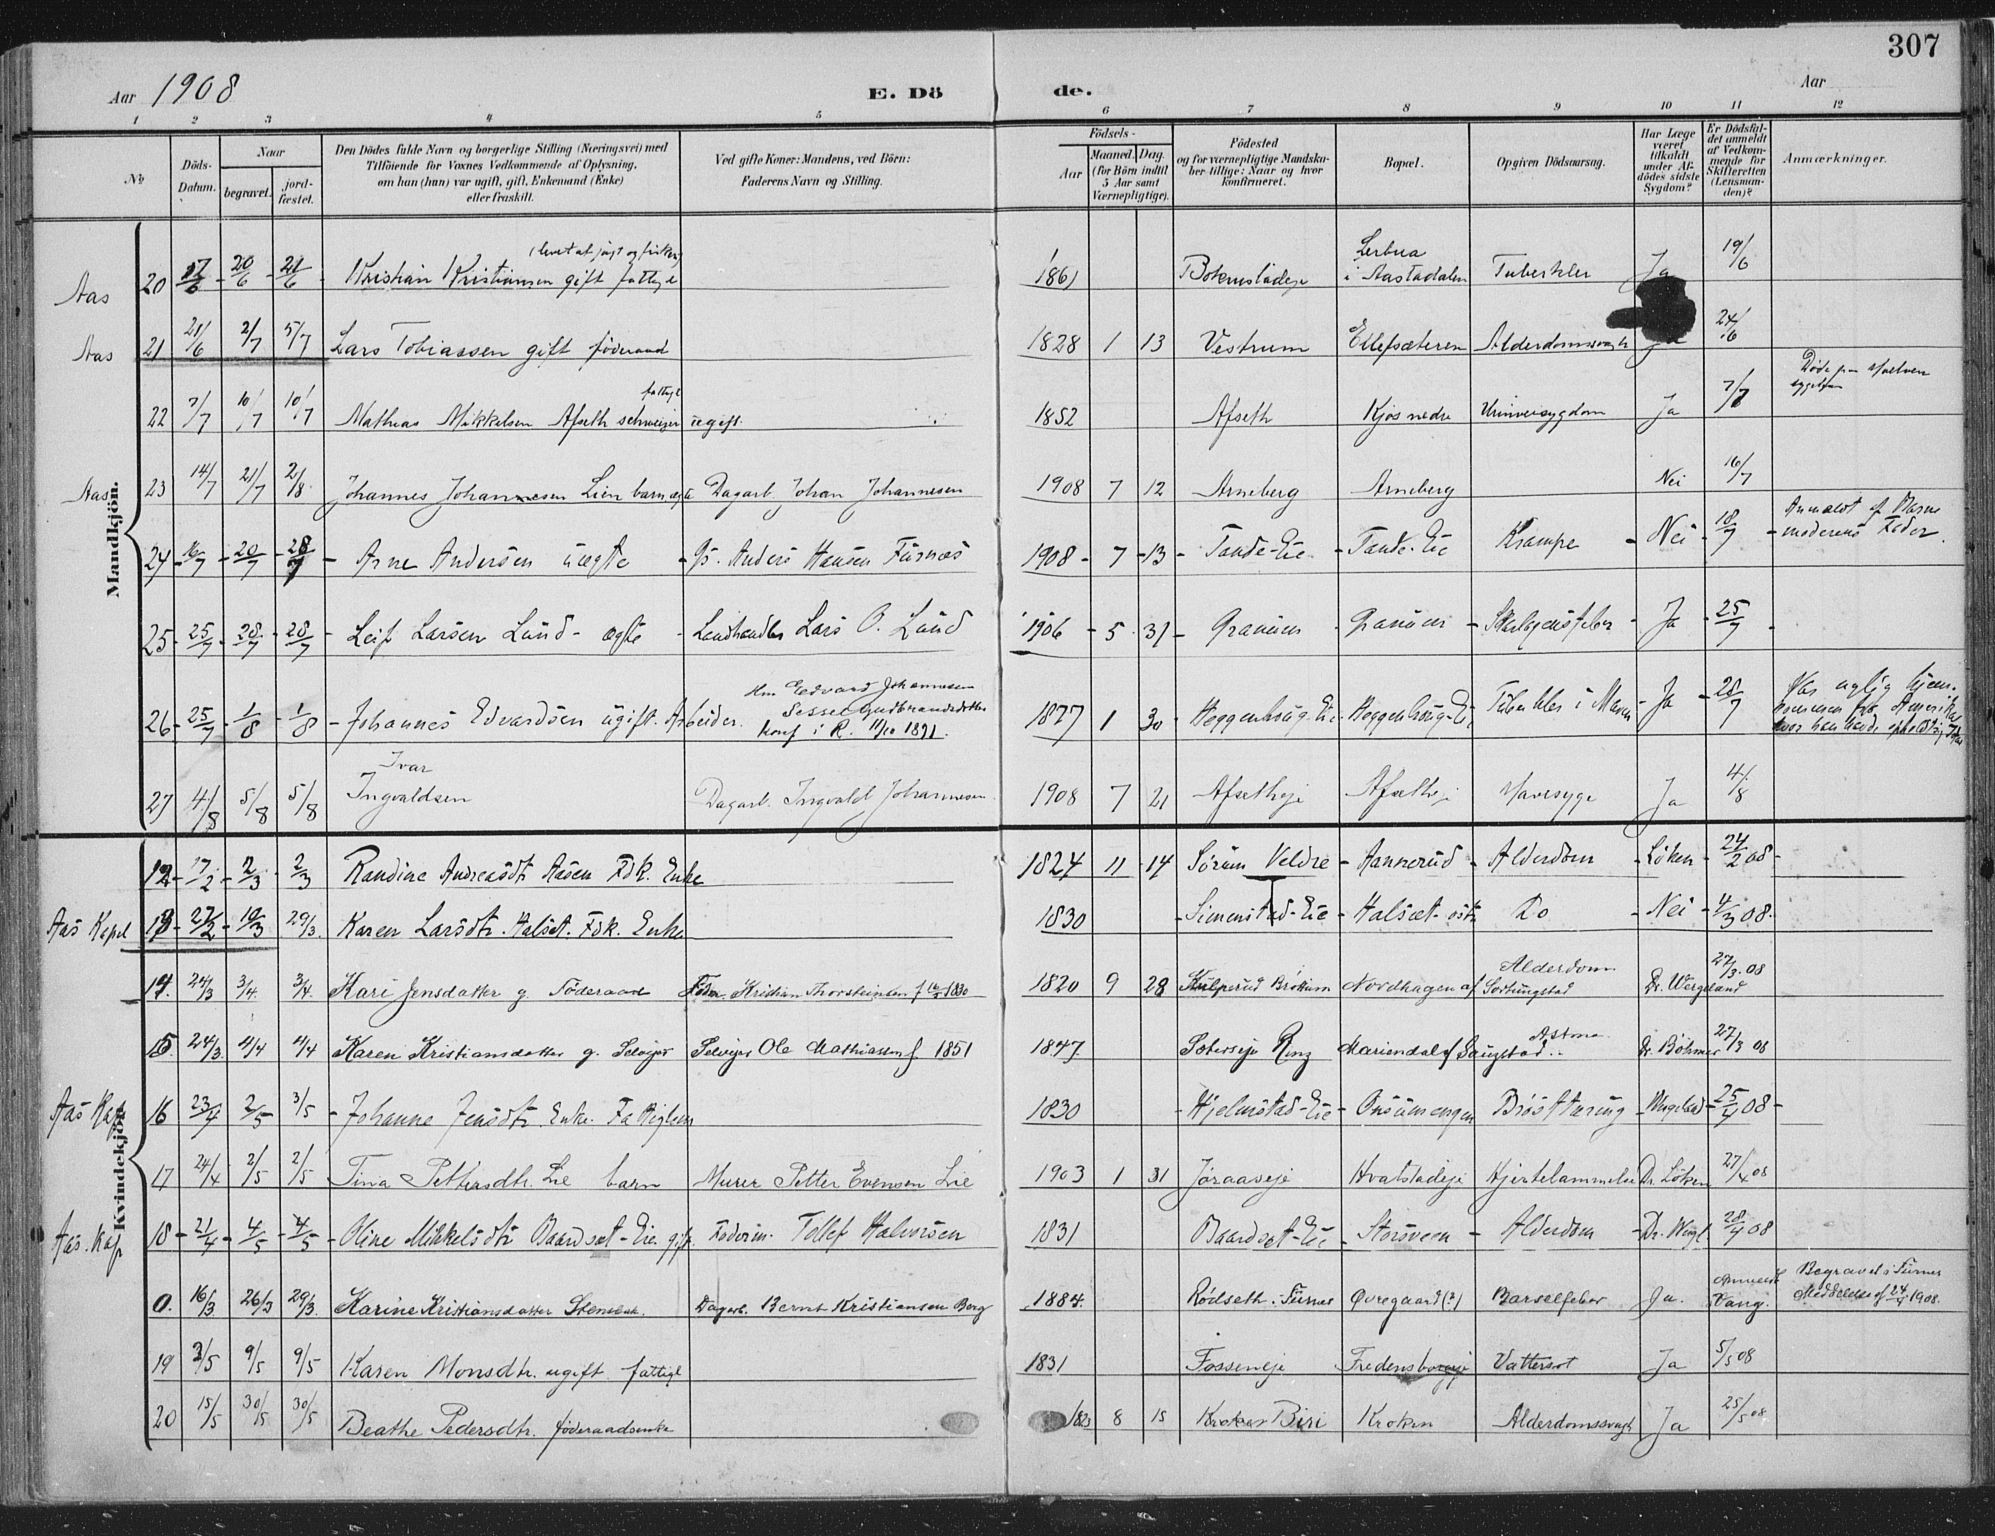 307
Aar 1908
E. Dö de.
Aar
1 2 3 4 5 6 7 8 9 10 11 12
No
Döds-Datum.
Naar
begravet.
jord-fæstet.
Den Dödes fulde Navn og borgerlige Stilling (Næringsvei) med
Tilföiende for Voxnes Vedkommende af Oplysning,
om han (hun) var ugift, gift, Enkemand (Enke)
eller fraskilt.
Ved gifte Koner: Mandens, ved Börn:
Faderens Navn og Stilling.
Födsels-
Aar
Maaned. Dag.
(for Börn indtil
5 Aar samt
Værnepligtige).
Födested
og for værnepligtige Mandska-
ber tillige: Naar og hvor
konfirmeret.
Bopæl.
Opgiven Dödsaarsag.
Har Læge
været
tilkaldt
under Af-
dödes sidste
Sygdom?
Er Dödsfal-
det anmeldt
af Vedkom-
mende for
Skifteretten
(Lensman-
den)?
Anmærkninger.
Mandkjön.
Aas 20 17/6 20/6 21/6 Kristian Kristiansen gift 1861 i Aastadalen Tuberkler Ja 19/6
Aas 21 21/6 2/7 5/7 Lars Tobiassen gift föderaad 1828 1 13 Vestrum Ellefsæteren Alderdomssvagh 24/6
22 7/7 10/7 10/7 Mathias Mikkelsen Afseth schweizer ugift. 1852 Afseth Kjos nedre Ja 7/7
Aas 23 14/7 21/7 2/8 Johannes Johannesen Lien barn ægte Dagarb. Johan Johannesen 1908 7 12 Arneberg Arneberg Nei 16/7
24 16/7 20/7 28/7 Arne Andersen uægte Anders Hansen Furnæs 1908 7 13 Tande-Eie Tande-Eie Krampe Nei 18/7 Anmeldt af Barne
moderens Fader.
25 25/7 28/7 28/7 Leif Larsen Lund - ægte Landhandler Lars O. Lund 1906 5 31 Granum Granum Skarlagensfeber Ja 25/7
26 25/7 1/8 1/8 Johannes Edvardsen ugift. Arbeider. Hm Edvard Johannesen
Gudbrandsdatter
konf i R. 11/10 1891. 1877 1 30 Heggenhoug-Eie Heggenhoug-Eie Tuberkler i Maven Ja 28/7
27 4/8 5/8 5/8 Ivar
Ingvaldsen Dagarb. Ingvald Johannesen 1908 7 21 Afsetheje Afsetheje Mavesyge Ja 4/8
Kvindekjön.
12 17/2 2/3 2/3 Randine Andreasdt Aasen Fdk. Enke 1824 11 14 Sörum Veldre Aannerud Alderdom Löken 24/2 08
Aas Kapel 13 27/2 10/3 29/3 Karen Larsdtr. Halset. Fdk. Enke 1830 Simenstad-Eie Halset östr Do Nei 4/3 08
14 24/3 3/4 3/4 Kari Jensdatter g. Föderaad Kristian Thorsteinsen f 1820 9 28 Bröttum Nordhagen af Alderdom Dr. Wergeland 27/3 08
15 24/3 4/4 4/4 Karen Kristiansdatter g. Selveier Selveier Ole Mathiassen f 1851 1847 Ring Mariendal af Astma Dr. Böhmer 27/3 08
Aas Kap 16 23/4 2/5 3/5 Johanne Jensdtr. Enke. Fattiglem 1830 Hjelmstad-Eie Onsumengen Brösttæring 25/4 08
17 24/4 2/5 2/5 Tina Pettersdtr. Lie barn Murer Petter Evensen Lie 1903 1 31 Joraaseje Hvalstadeje Hjertelammelse Dr. Löken 27/4 08
Aas. Kap 18 21/4 4/5 4/5 Oline Mikkelsdtr Baardset-Eie gift. Tollef Halvorsen 1831 Baardset-Eie Storsveen Alderdom 28/4 08
0. 16/3 26/3 29/3 Karine Kristiansdatter Dagarb. Bernt Kristiansen Berg 1884. Rödseth i Furnes Övregaard (?) Barselfeber Ja. Vang. Begravet i Furnes
Meddelelse af 24/4 1908.
19 3/5 9/5 9/5 Karen Monsdtr. ugift fattigl 1831 Fosseneje Vattersot Ja 5/5 08
20 15/5 30/5 30/5 Beathe Pedersdtr. föderaadsenke 8 15 Biri Kroken Alderdomssvagh Ja 25/5 08